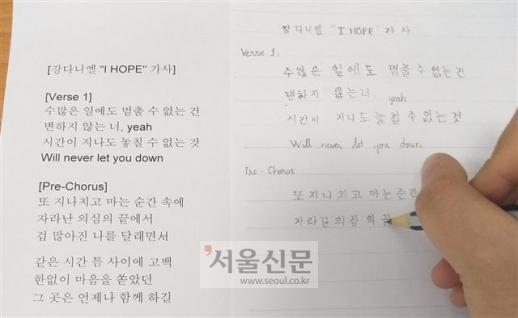 [강다니엘 "I HOPE" 가사]
[Verse 1]
수많은 일에도 멈출 수 없는 건
변하지 않는 너, yeah
시간이 지나도 놓칠 수 없는 것
Will never let you down
[Pre-Chorus]
또 지나치고 마는 순간 속에
자라난 의심의 끝에서
겁 많아진 나를 달래면서
같은 시간 틈 사이에 고백
한없이 마음을 쏟았던
그 곳은 언제나 함께 하길
강다니엘 "I HOPE" 가사
Verse 1.
수많은 일에도 멈출 수 없는건
변하지 않는 너, yeah
시간이 지나도 놓칠 수 없는 것
Will never let you down
Pre-Chorus
또 지나치고 마는 순간
자라난 의심의 끝
서울신문
www.seoul.co.kr